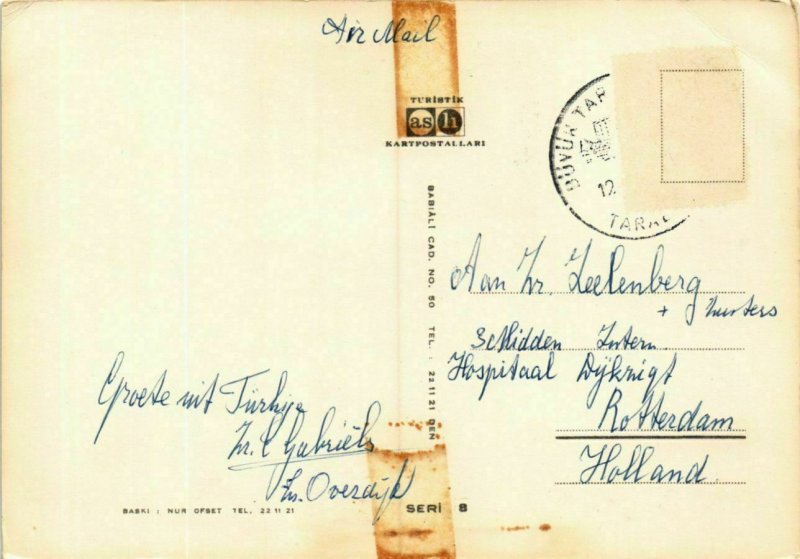 Air Mail
TURİSTİK
as h
KARTPOSTALLARI
BÜYÜK TAR
12
TARA
BABIÂLİ CAD. NO. 50 TEL. : 22 11 21 DEN
Aan Zr. Zeelenberg
+ zusters
3e Midden Intern
Hospitaal Dijkzigt
Rotterdam
Holland.
Groete uit Türkiye
Zr. C Gabriëls
Zr. Overdijk
BASKI : NUR OFSET TEL. 22 11 21
SERİ 8